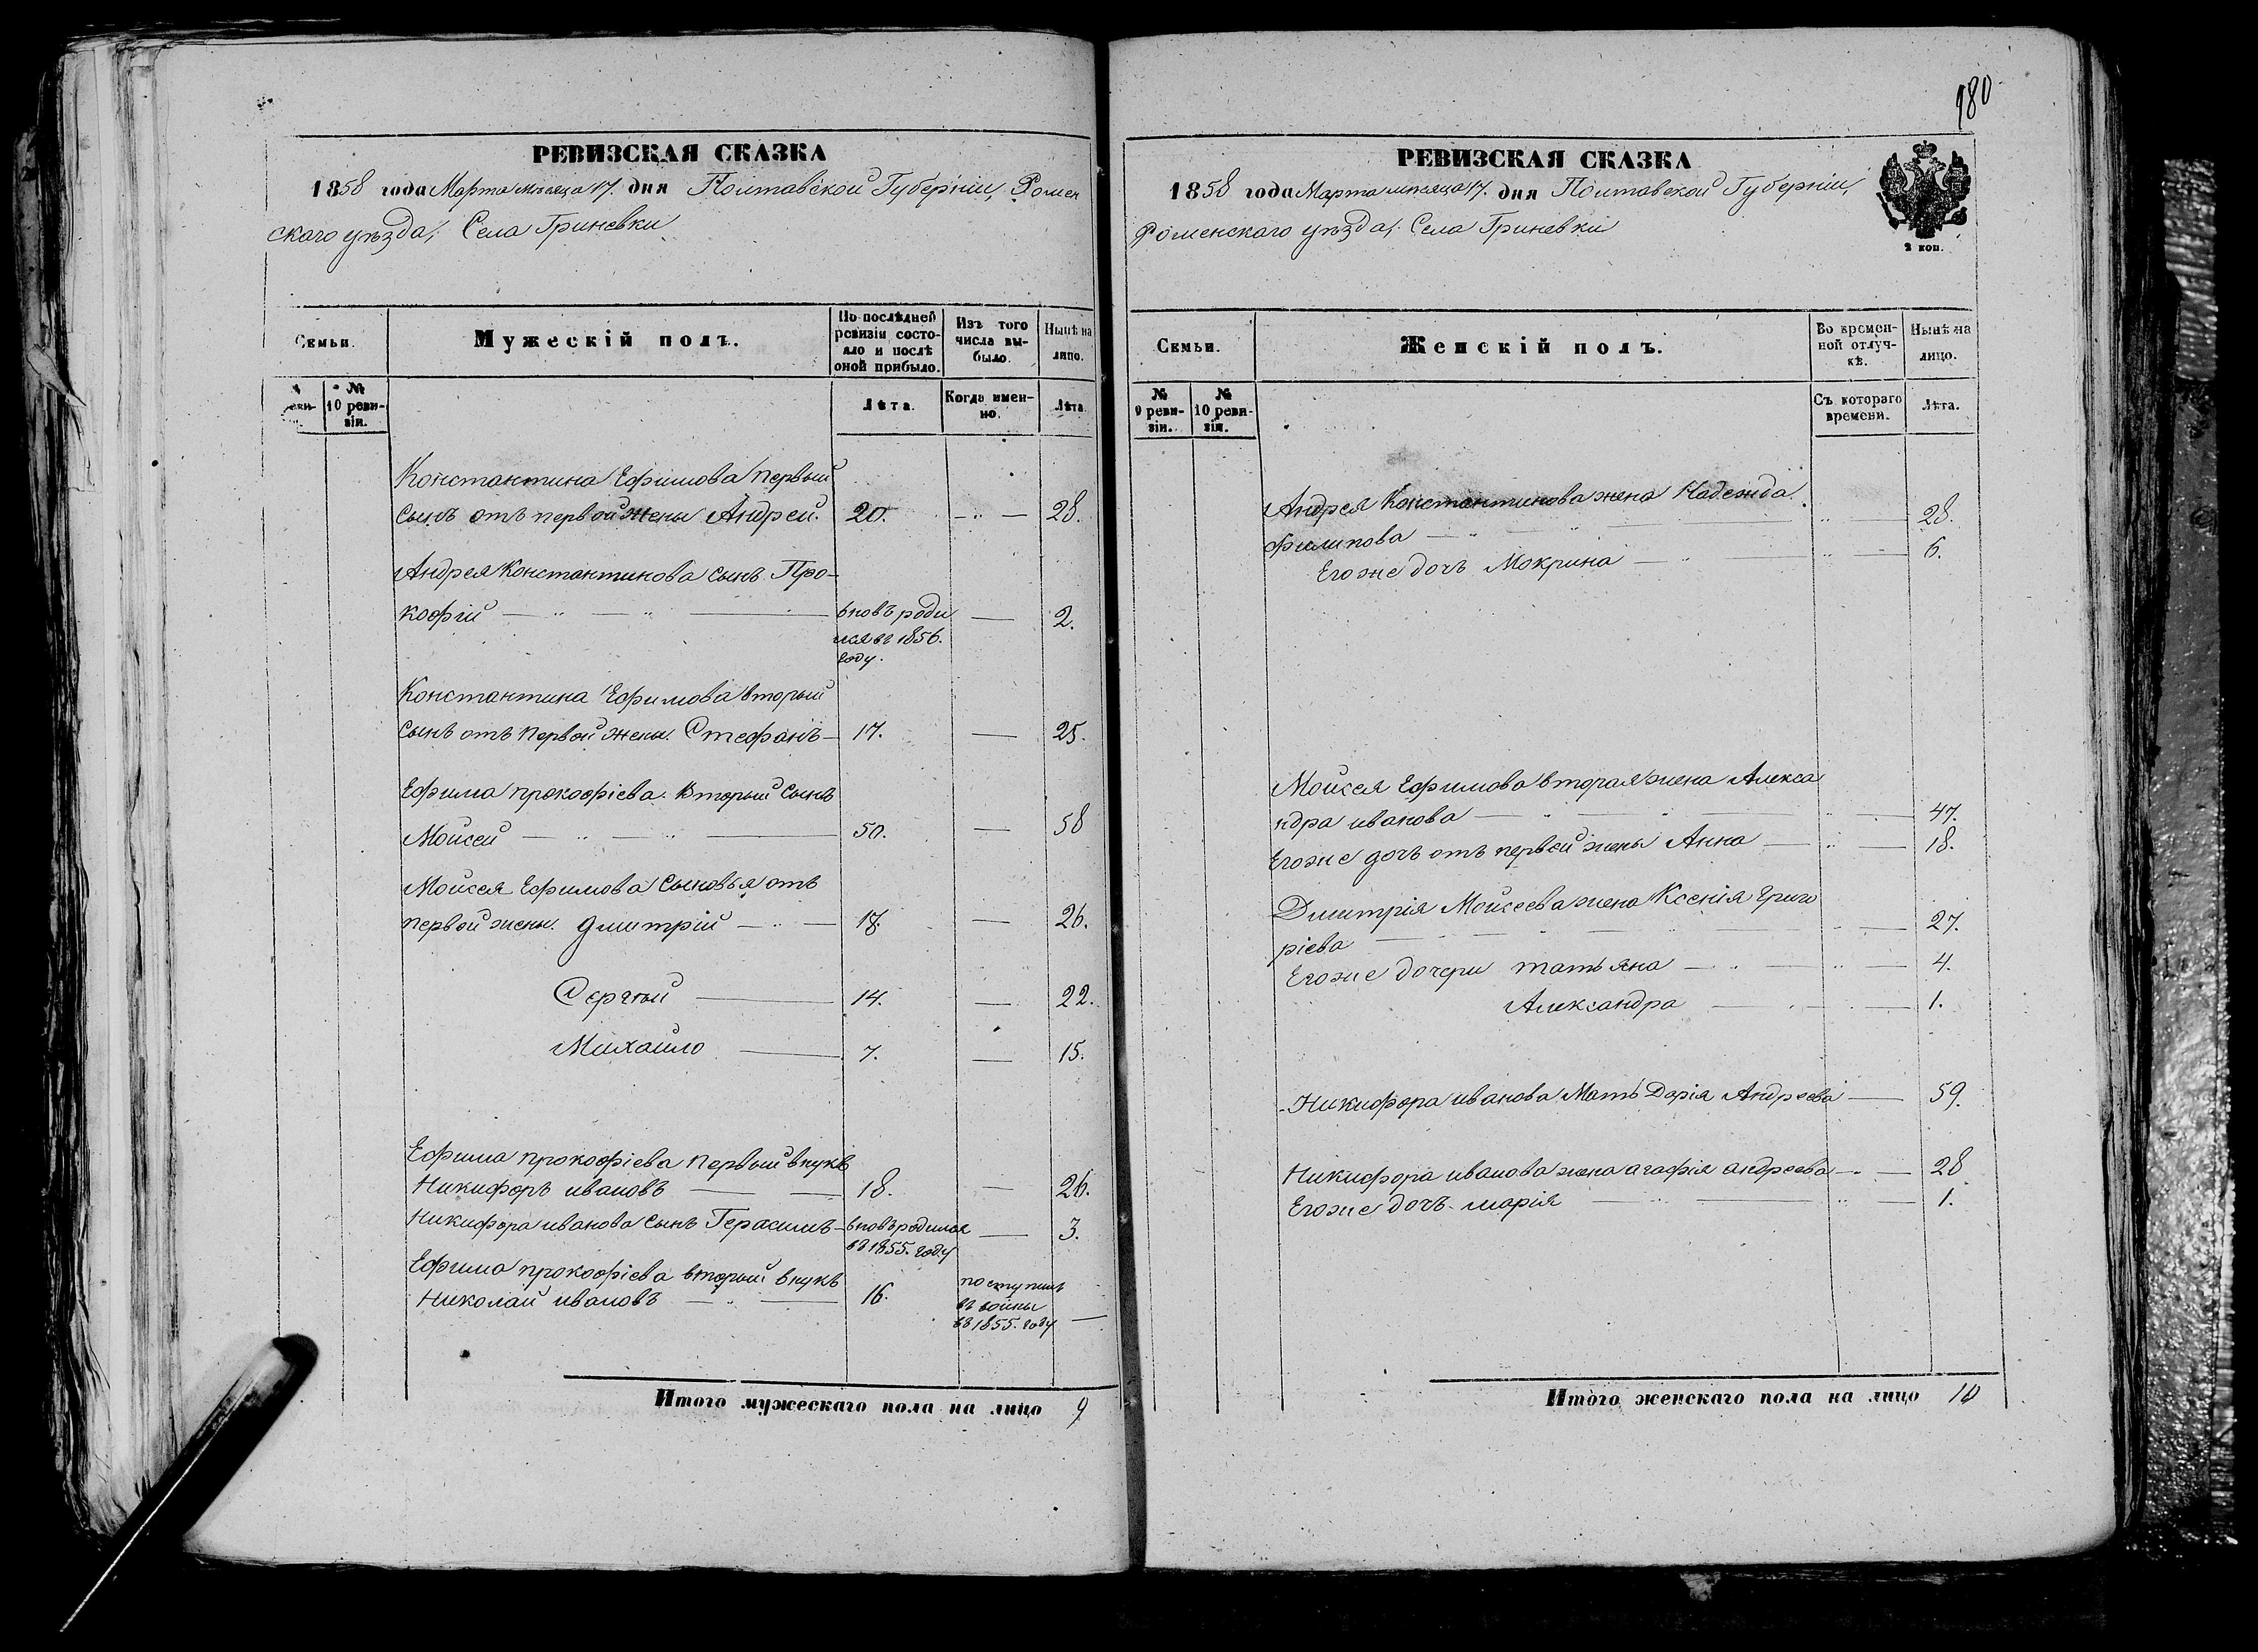 180
РЕВИЗСКАЯ СКАЗКА
1858 года Марта месяца 17. дня Полтавской Губернии, Ромен
скаго уѣзда, Села Гриневки
Семьи.
Мужескій полъ.
По послѣдней ревизіи состояло и послѣ оной прибыло.
Изъ того числа выбыло.
Нынѣ на лицо.
№ 10 ревизіи.
Лѣта.
Когда именно.
Лѣта.
Константина Ефимова первый
сынъ отъ первой жены Андрей. 20. 28.
Андрея Константинова сынъ Про-
кофій вновь роди 2.
лся въ 1856.
году.
Константина Ефимова вторый
сынъ отъ первой жены. Стефанъ 17. 25.
Ефима прокофіева вторый сынъ
Моисей 50. 58
Моисея Ефимова сыновья отъ
первой жены. Дмитрій 18. 26.
Сергѣй 14. 22.
Михайло 7. 15.
Ефима прокофіева первый внукъ
Никифоръ ивановъ 18. 26.
Никифора иванова сынъ Герасимъ вновь родился 3.
въ 1855. году
Ефима прокофіева вторый внукъ
Николай ивановъ 16. поступилъ
въ воины
въ 1855. году
Итого мужескаго пола на лицо 9
РЕВИЗСКАЯ СКАЗКА
1858 года Марта месяца 17. дня Полтавской Губерніи,
Роменскаго уѣзда, Села Гриневки
2 коп.
Семьи.
Женскій полъ.
Во временной отлучкѣ.
Нынѣ на лицо.
№ 9 ревизіи.
№ 10 ревизіи.
Съ котораго времени.
Лѣта.
Андрея Константинова жена Надежда
Филипова 28.
Его же дочь Мокрина 6.
Моисея Ефимова вторая жена Алекса
ндра иванова 47.
Его же дочь отъ первой жены Анна 18.
Дмитрія Моисеева жена Ксенія Григо
ріева 27.
Его же дочери татьяна 4.
Александра 1.
Никифора иванова Мать Дарія Андреева 59.
Никифора иванова жена агафія андреева 28
Его же дочь марія 1.
Итого женскаго пола на лицо 10